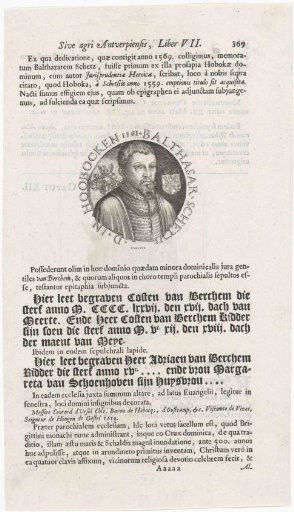 Sive agri Antverpiensis, Liber VII. 369
Ex qua dedicatione, quæ contigit anno 1569. colligimus, memora-
tum Balthazarem Schetz, fuisse primum ex illa prosapia Hobokæ do-
minum, cum autor Jurisprudentiæ Heroicæ, scribat, loco à nobis supra
citato, quod Hoboka, à Schetsiis anno 1559. emptionis titulo sit acquisita.
Nacti sumus effigiem ejus, quam ob epigraphen ei adjunctam subjunge-
mus, ad fulcienda ea quæ scripsimus.
1561. BALTHASAR SCHETS
D. IN HOOBOCKEN
Possederunt olim in hoc dominio quædam minora dominicalia jura gen-
tiles van Berchem, & quorum aliquos in choro templi parochialis sepultos es-
se, testantur epitaphia subjuncta.
Hier leet begraven Costen van Berchem die
sterf anno M. CCCC. lxxvij. den xvj. dach van
Meerte. Ende Heer Costen van Berchem Ridder
sijn soen die sterf anno M. Vc xij. den xviij. dach
der maent van Meye.
Ibidem in eodem sepulchrali lapide.
Hier leet begraven Heer Adriaen van Berchem
Ridder die sterf anno xvc . . . . ende vrou Marga-
reta van Schoenhoven sijn Huysvrou . . . .
In eadem ecclesia juxta summum altare, ad latus Euangelii, legitur in
fenestra, loci domini insignibus decorata.
Messire Conrard d'Ursel Chlr. Baron de Hoboque, d'Oostcamp, &c. Viscomte de Vivier,
Seigneur de Hingen de Gestel 1619.
Præter parochialem ecclesiam, hîc loci vetus sacellum est, quod Bri-
gittini monachi nunc administrant, inque eo Crux dominica, de qua tra-
ditio, illam æstu maris & Schaldis magnâ inundatione, ante 500. annos
huc adpulisse, atque in arundineto primùm inventam, Christum verò in
ea quatuor clavis affixum, vicinorum religiosa devotio celebrem fecit, &
Aaaaa Al.